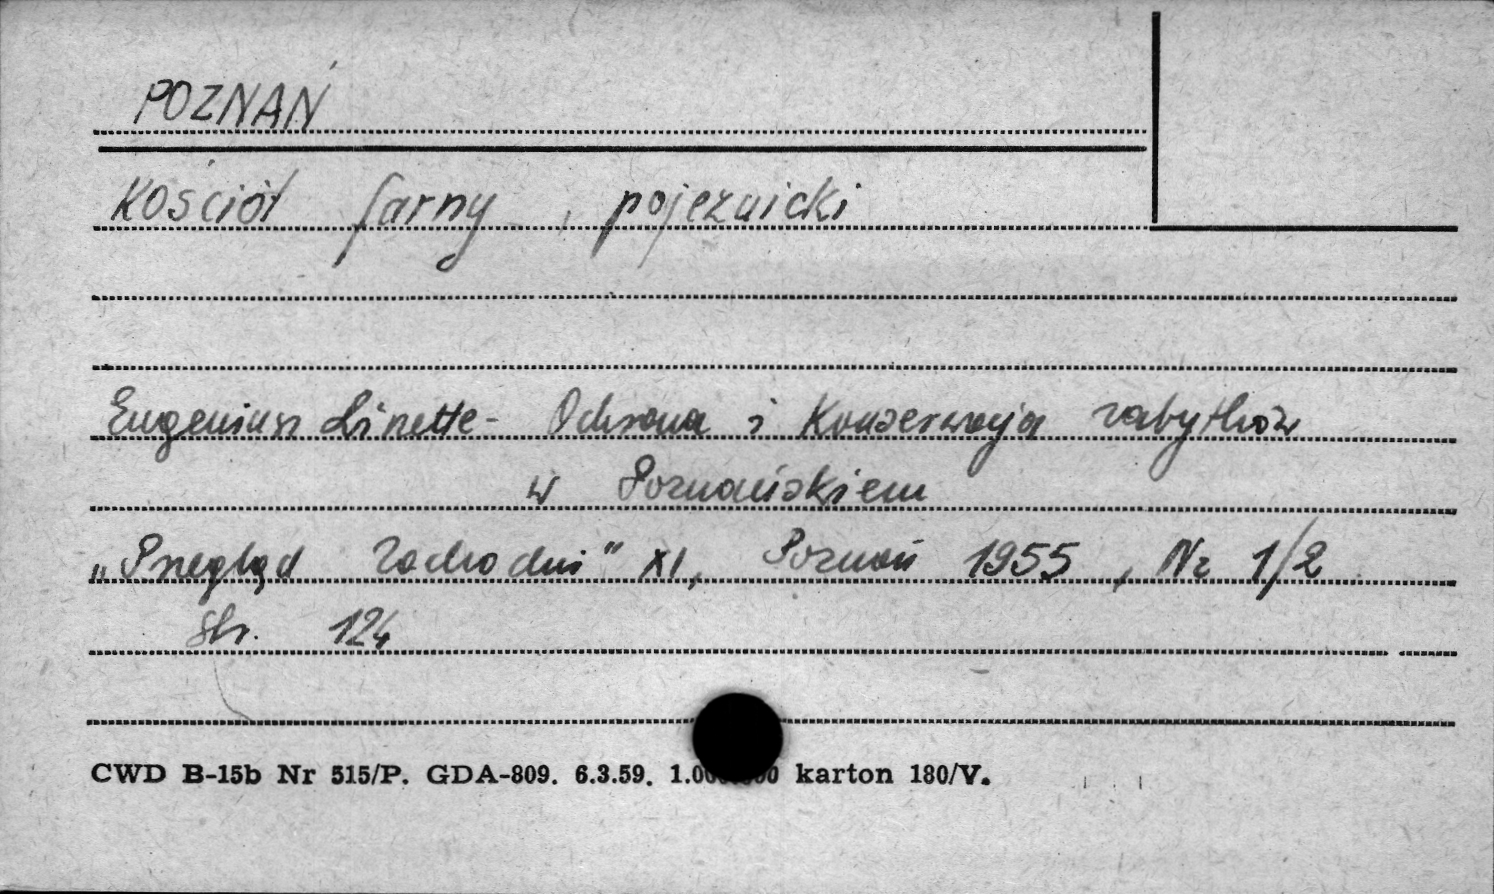 POZNAŃ
Kościół farny, pojezuicki
Eugeniusz Linette - Ochrona i Konserwacja zabytków
w Poznańskiem
„Przegląd Zachodni" XI, Poznań 1955, Nr 1/2
str. 124
CWD B-15b Nr 515/P. GDA-809. 6.3.59. karton 180/V.